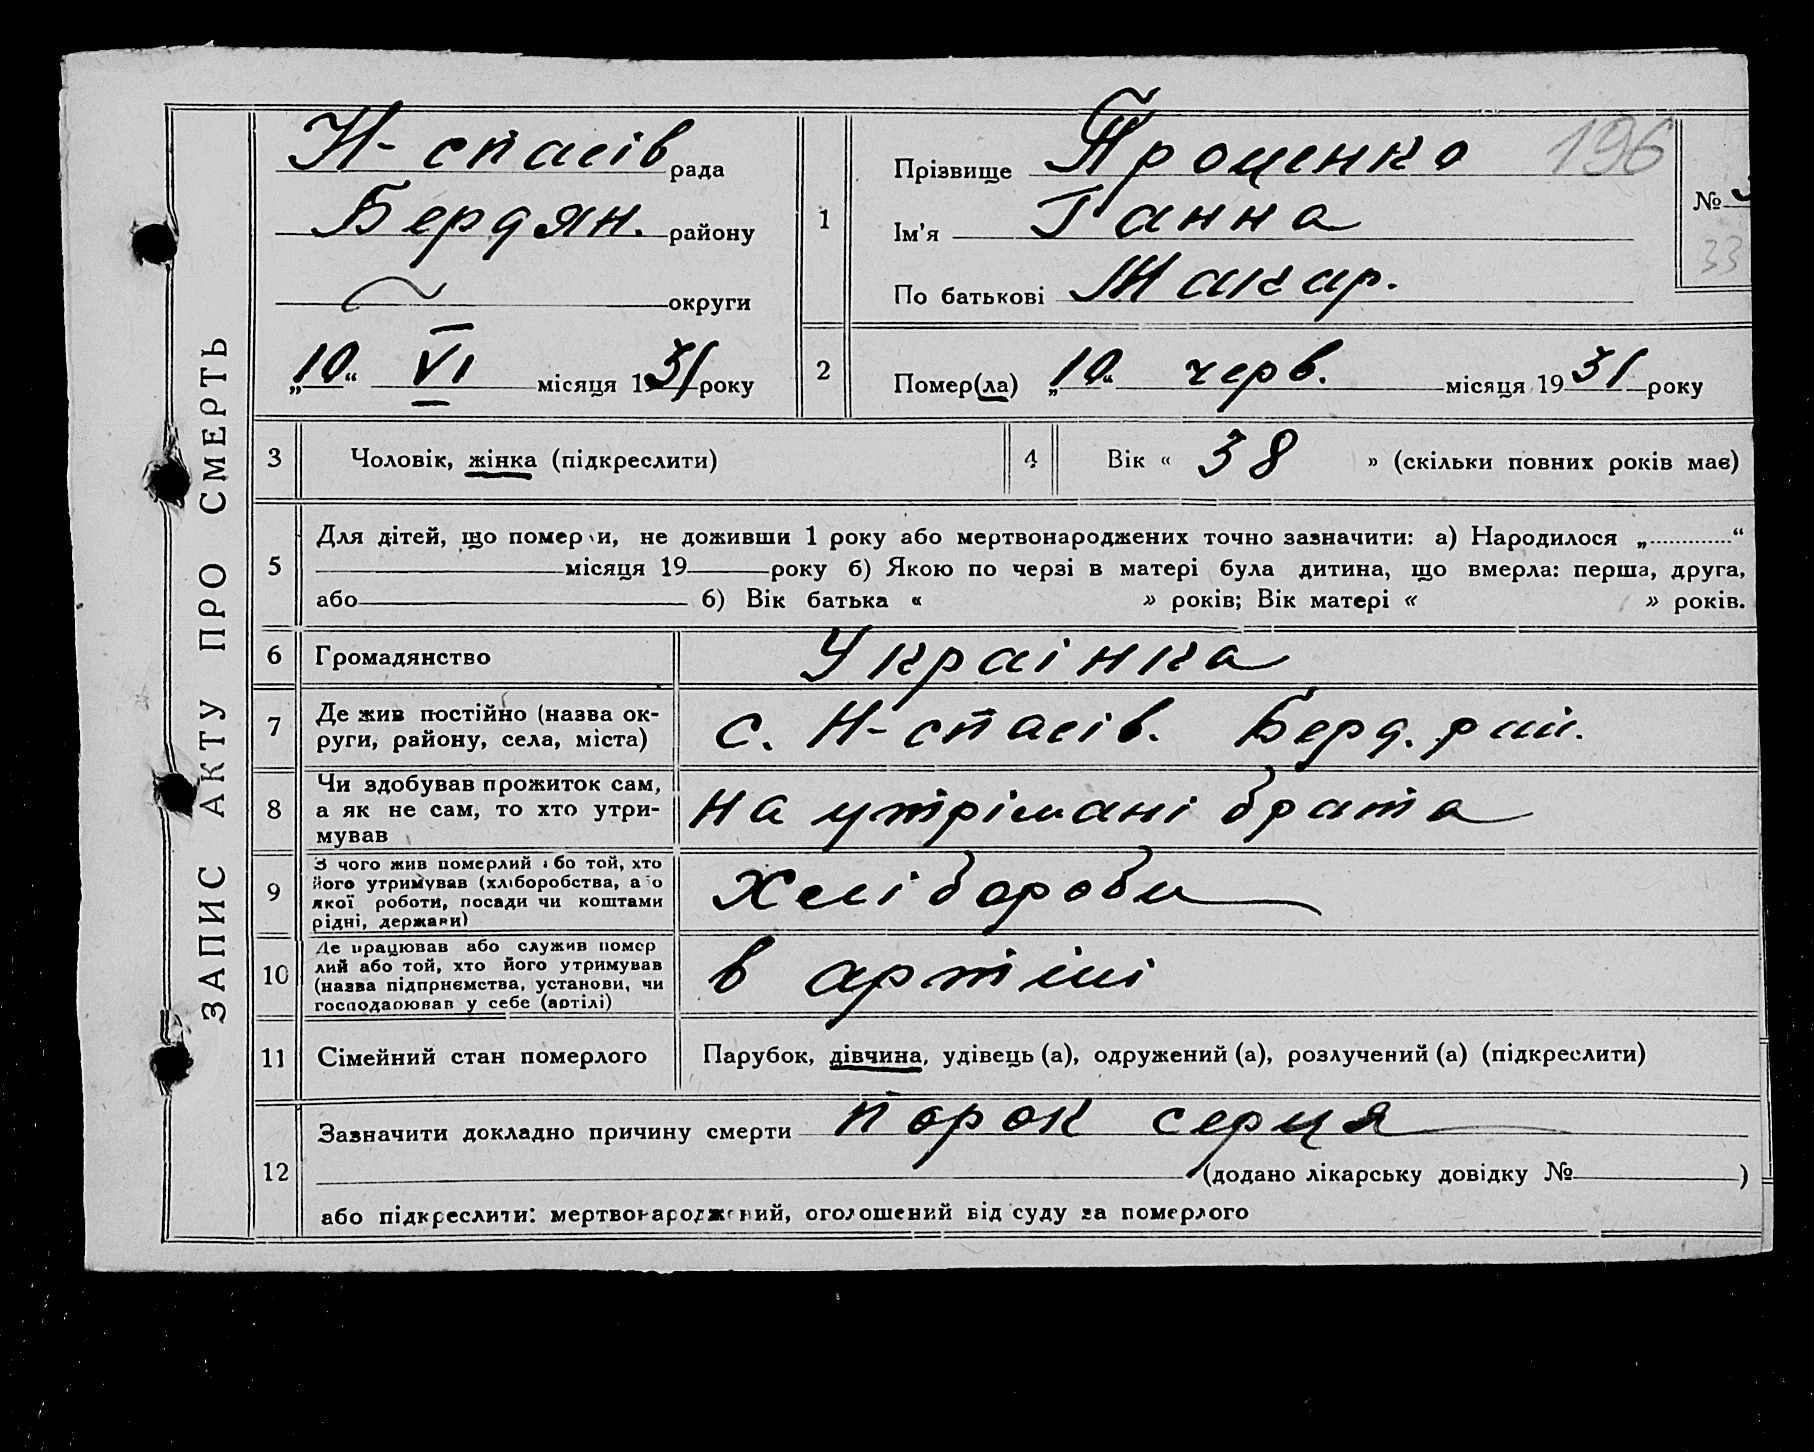 ЗАПИС АКТУ ПРО СМЕРТЬ
Н-спасів рада
Бердян. району
округи
„10“ VI місяця 1931 року
1
Прізвище Проценко
Ім'я Ганна
По батькові Макар.
196
№
33
2
Помер(ла) „10“ черв. місяця 1931 року
3 Чоловік, жінка (підкреслити)
4 Вік « 38 » (скільки повних років має)
5
Для дітей, що померли, не доживши 1 року або мертвонароджених точно зазначити: а) Народилося „............“
місяця 19 року б) Якою по черзі в матері була дитина, що вмерла: перша, друга,
або б) Вік батька « » років; Вік матері « » років.
6 Громадянство Украінка
7 Де жив постійно (назва ок-
руги, району, села, міста)
с. Н-спасів. Берд. рай.
8 Чи здобував прожиток сам,
а як не сам, то хто утри-
мував
на утрімані брата
9 З чого жив померлий або той, хто
його утримував (хліборобства, або
якої роботи, посади чи коштами
рідні, держави)
Хелібороби
10 Де працював або служив помер
лий або той, хто його утримував
(назва підприємства, установи, чи
господарював у себе (артілі)
в артілі
11 Сімейний стан померлого
Парубок, дівчина, удівець (а), одружений (а), розлучений (а) (підкреслити)
12
Зазначити докладно причину смерти порок серця
(додано лікарську довідку № )
або підкреслити: мертвонароджений, оголошений від суду за померлого